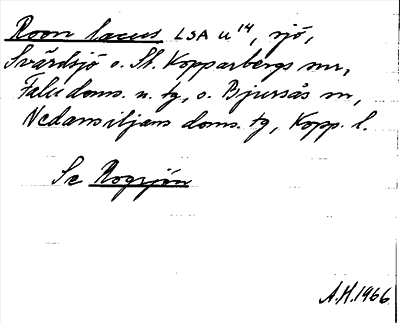 Roon lacus LSA U 14, sjö,
Svärdsjö o. St. Kopparbergs snr,
Falu doms. n. tg, o. Bjursås sn,
Nedansiljans doms. tg, Kopp. l.
Se Rogsjön
A.H. 1966